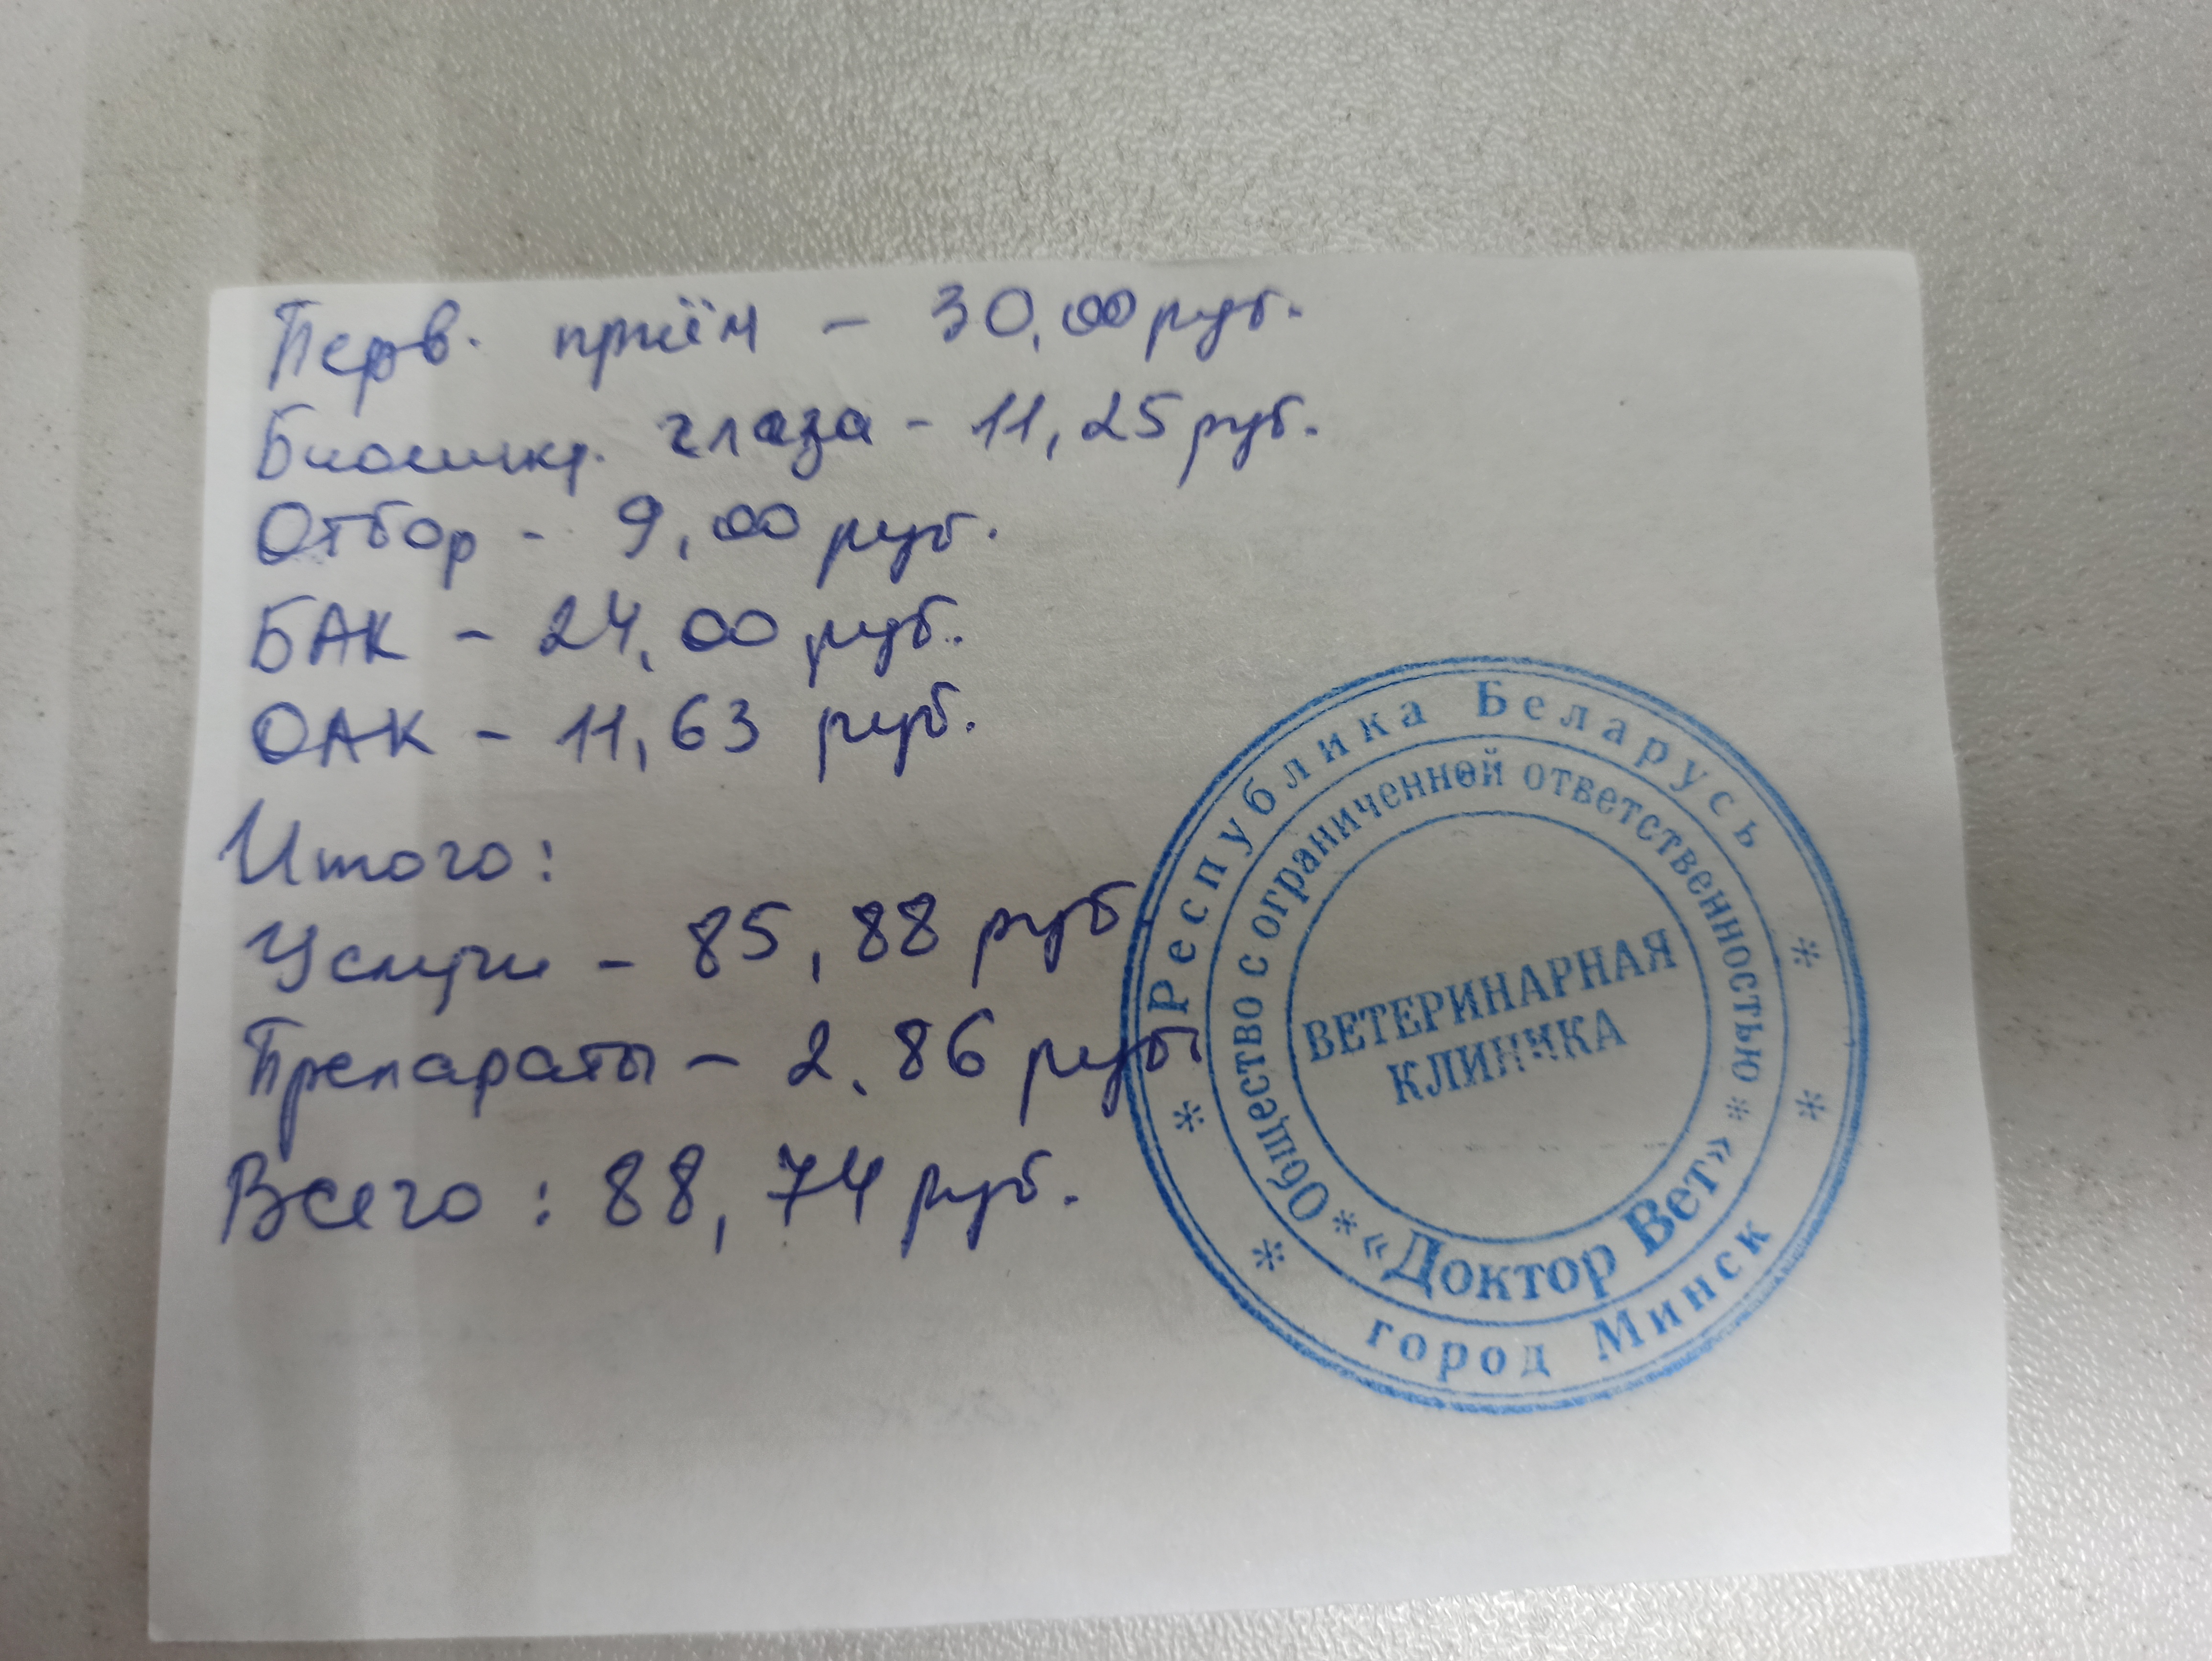 Перв. приём - 30,00 руб.
Биомикр. глаза - 11,25 руб.
Отбор - 9,00 руб.
БАК - 24,00 руб.
ОАК - 11,63 руб.
Итого:
Услуги - 85,88 руб.
Препараты - 2,86 руб.
Всего: 88,74 руб.
Республика Беларусь
Общество с ограниченной ответственностью
ВЕТЕРИНАРНАЯ
КЛИНИКА
«Доктор Вет»
город Минск